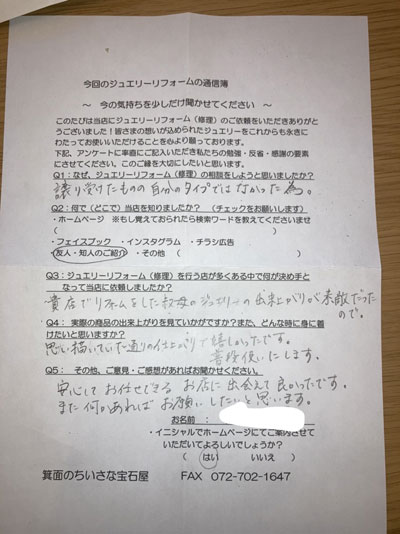 今回のジュエリーリフォームの通信簿
～ 今の気持ちを少しだけ聞かせてください ～
このたびは当店にジュエリーリフォーム（修理）のご依頼をいただきありがと
うございました！皆さまの想いが込められたジュエリーをこれからも永きに
わたってお使いいただけることを心より願っております。
下記、アンケートに率直にご記入いただき私たちの勉強・反省・感謝の要素
にさせてください。このご縁を大切にしたいと思います。
Q1：なぜ、ジュエリーリフォーム（修理）の相談をしようと思いましたか？
譲り受けたものの自分のタイプではなかった為。
Q2：何で（どこで）当店を知りましたか？ （チェックをお願いします）
・ホームページ ※もし覚えておられたら検索ワードを教えてくださいませ
（ ）
・フェイスブック ・インスタグラム ・チラシ広告
友人・知人のご紹介 ・その他（ ）
Q3：ジュエリーリフォーム（修理）を行う店が多くある中で何が決め手と
なって当店に依頼しましたか？
貴店でリフォームをした叔母のジュエリーの出来上がりが素敵だった
ので。
Q4： 実際の商品の出来上がりを見ていかがですか？また、どんな時に身に着
けたいと思いますか？
思い描いていた通りの仕上がりで嬉しかったです。
普段使いにします。
Q5： その他、ご意見・ご感想があればお聞かせください。
安心してお任せできるお店に出会えて良かったです。
また何かあればお願いしたいと思います。
お名前：
・イニシャルでホームページにてご案内させて
いただいてよろしいでしょうか？
（ はい いいえ ）
箕面のちいさな宝石屋 FAX 072-702-1647